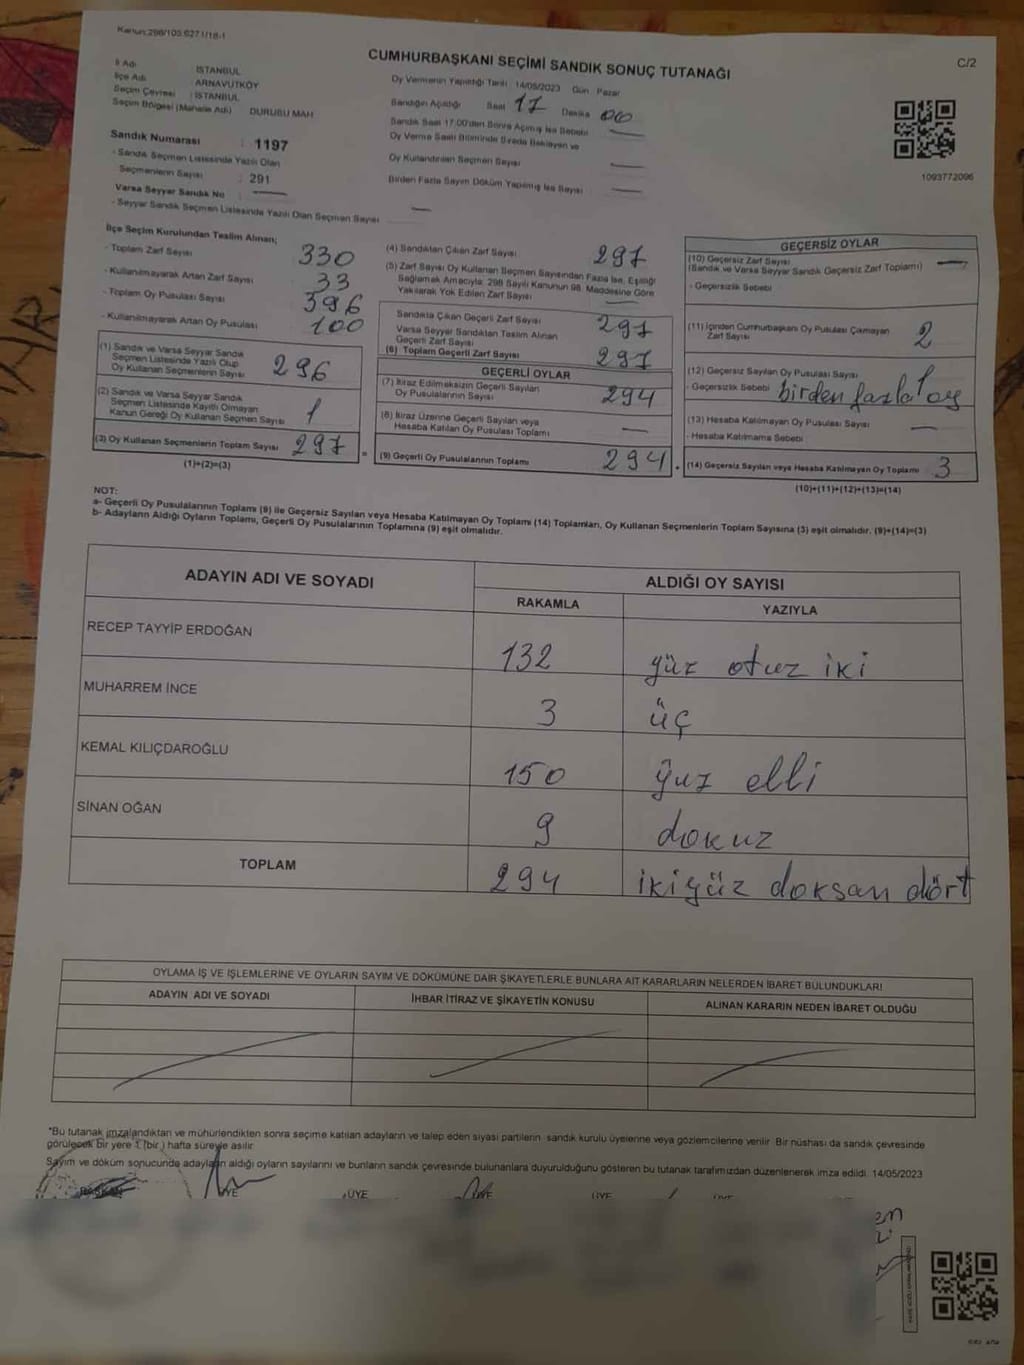 Kanun:298/105,6271/18-1
C/2
CUMHURBAŞKANI SEÇİMİ SANDIK SONUÇ TUTANAĞI
İl Adı İSTANBUL
İlçe Adı ARNAVUTKÖY
Seçim Çevresi : İSTANBUL
Seçim Bölgesi (Mahalle Adı) DURUSU MAH
Oy Vermenin Yapıldığı Tarih 14/05/2023 Gün Pazar
Sandığın Açıldığı Saat 17 Dakika 00
Sandık Saat 17:00'den Sonra Açılmış İse Sebebi
Oy Verme Saati Bitiminde Sırada Bekleyen ve
Oy Kullandırılan Seçmen Sayısı
Birden Fazla Sayım Döküm Yapılmış İse Sayısı
1093772096
Sandık Numarası : 1197
- Sandık Seçmen Listesinde Yazılı Olan
Seçmenlerin Sayısı : 291
Varsa Seyyar Sandık No :
- Seyyar Sandık Seçmen Listesinde Yazılı Olan Seçmen Sayısı
İlçe Seçim Kurulundan Teslim Alınan;
- Toplam Zarf Sayısı 330
- Kullanılmayarak Artan Zarf Sayısı 33
- Toplam Oy Pusulası Sayısı 396
- Kullanılmayarak Artan Oy Pusulası 100
(1) Sandık ve Varsa Seyyar Sandık
Seçmen Listesinde Yazılı Olup
Oy Kullanan Seçmenlerin Sayısı 296
(2) Sandık ve Varsa Seyyar Sandık
Seçmen Listesinde Kayıtlı Olmayan
Kanun Gereği Oy Kullanan Seçmen Sayısı 1
(3) Oy Kullanan Seçmenlerin Toplam Sayısı 297 =
(1)+(2)=(3)
(4) Sandıktan Çıkan Zarf Sayısı 297
(5) Zarf Sayısı Oy Kullanan Seçmen Sayısından Fazla İse, Eşitliği
Sağlamak Amacıyla, 298 Sayılı Kanunun 98. Maddesine Göre
Yakılarak Yok Edilen Zarf Sayısı
Sandıkta Çıkan Geçerli Zarf Sayısı 297
Varsa Seyyar Sandıktan Teslim Alınan
Geçerli Zarf Sayısı
(6) Toplam Geçerli Zarf Sayısı 297
GEÇERLİ OYLAR
(7) İtiraz Edilmeksizin Geçerli Sayılan
Oy Pusulalarının Sayısı 294
(8) İtiraz Üzerine Geçerli Sayılan veya
Hesaba Katılan Oy Pusulası Toplamı
(9) Geçerli Oy Pusulalarının Toplamı 294
GEÇERSİZ OYLAR
(10) Geçersiz Zarf Sayısı
(Sandık ve Varsa Seyyar Sandık Geçersiz Zarf Toplamı)
- Geçersizlik Sebebi
(11) İçinden Cumhurbaşkanı Oy Pusulası Çıkmayan
Zarf Sayısı 2
(12) Geçersiz Sayılan Oy Pusulası Sayısı 1
- Geçersizlik Sebebi birden fazla oy
(13) Hesaba Katılmayan Oy Pusulası Sayısı
- Hesaba Katılmama Sebebi
(14) Geçersiz Sayılan veya Hesaba Katılmayan Oy Toplamı 3
(10)+(11)+(12)+(13)=(14)
NOT:
a- Geçerli Oy Pusulalarının Toplamı (9) ile Geçersiz Sayılan veya Hesaba Katılmayan Oy Toplamı (14) Toplamları, Oy Kullanan Seçmenlerin Toplam Sayısına (3) eşit olmalıdır. (9)+(14)=(3)
b- Adayların Aldığı Oyların Toplamı, Geçerli Oy Pusulalarının Toplamına (9) eşit olmalıdır.
ADAYIN ADI VE SOYADI
ALDIĞI OY SAYISI
RAKAMLA YAZIYLA
RECEP TAYYİP ERDOĞAN 132 yüz otuz iki
MUHARREM İNCE 3 üç
KEMAL KILIÇDAROĞLU 150 yüz elli
SİNAN OĞAN 9 dokuz
TOPLAM 294 ikiyüz doksan dört
OYLAMA İŞ VE İŞLEMLERİNE VE OYLARIN SAYIM VE DÖKÜMÜNE DAİR ŞİKAYETLERLE BUNLARA AİT KARARLARIN NELERDEN İBARET BULUNDUKLARI
ADAYIN ADI VE SOYADI İHBAR İTİRAZ VE ŞİKAYETİN KONUSU ALINAN KARARIN NEDEN İBARET OLDUĞU
*Bu tutanak imzalandıktan ve mühürlendikten sonra seçime katılan adayların ve talep eden siyasi partilerin sandık kurulu üyelerine veya gözlemcilerine verilir. Bir nüshası da sandık çevresinde
görülecek bir yere 1 (bir) hafta süreyle asılır.
Sayım ve döküm sonucunda adayların aldığı oyların sayılarını ve bunların sandık çevresinde bulunanlara duyurulduğunu gösteren bu tutanak tarafımızdan düzenlenerek imza edildi. 14/05/2023
BAŞKAN ÜYE ÜYE ÜYE ÜYE